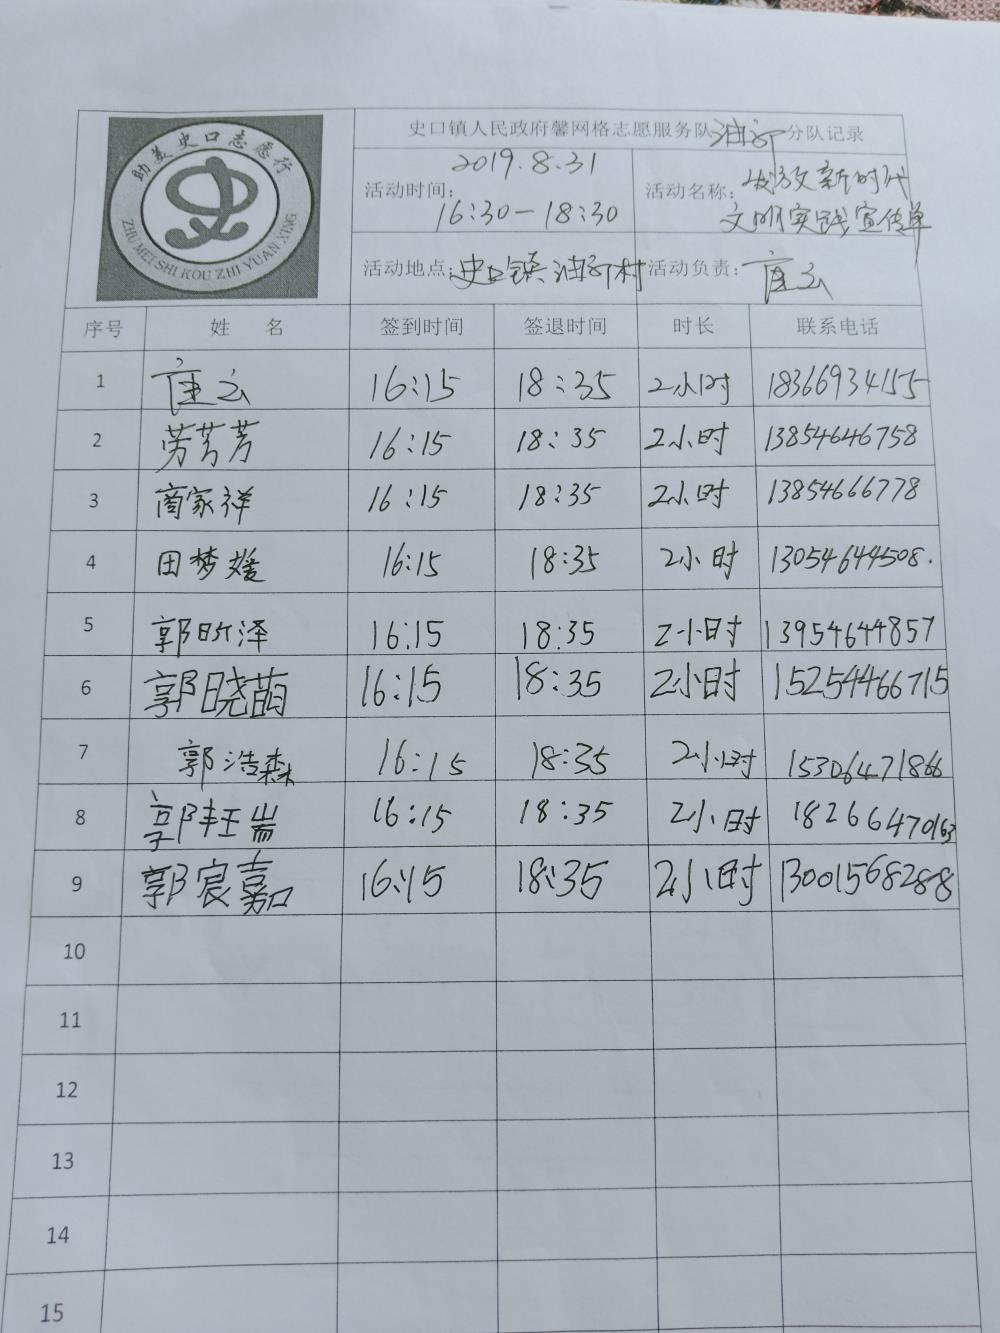 助美史口志愿行
ZHU MEI SHI KOU ZHI YUAN XING
史口镇人民政府馨网格志愿服务队油郭分队记录
活动时间: 2019.8.31
16:30-18:30
活动名称: 发放新时代
文明实践宣传单
活动地点: 史口镇油郭村 活动负责:
序号 姓 名 签到时间 签退时间 时长 联系电话
1 16:15 18:35 2小时 18366934155
2 劳芳芳 16:15 18:35 2小时 13854646758
3 商家祥 16:15 18:35 2小时 13854666778
4 田梦媛 16:15 18:35 2小时 13054644508.
5 郭昕泽 16:15 18:35 2小时 13954644857
6 郭晓萌 16:15 18:35 2小时 15254466715
7 郭浩森 16:15 18:35 2小时 15306471866
8 郭 16:15 18:35 2小时 18266470163
9 郭宸嘉 16:15 18:35 2小时 13001568288
10
11
12
13
14
15